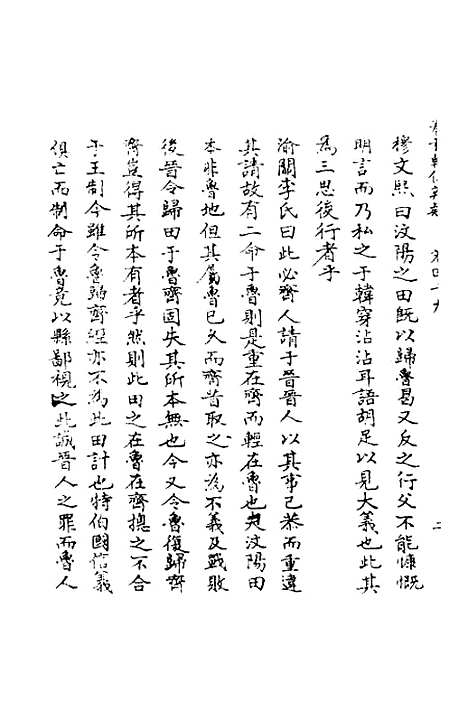 卷四十九
二
穆文熙曰汶陽之田既以歸魯曷又反之行父不能慷慨
明言而乃私之于韓穿沾沾耳語胡足以見大義也此其
爲三思後行者乎
渝關李氏曰此必齊人請于晉晉人以其事已恭而重違
其請故有二命于魯則是重在齊而輕在魯也夫汶陽田
本非魯地但其屬魯已久而齊昔取之亦爲不義及戰敗
後晉令歸田于魯齊固失其所本無也今又令魯復歸齊
齊豈得其所本有者乎然則此田之在魯在齊摠之不合
于王制今雖令魯歸齊經亦不為此田計也特伯國信義
俱亡而制命于魯竟以縣鄙視之此誠晉人之罪而魯人